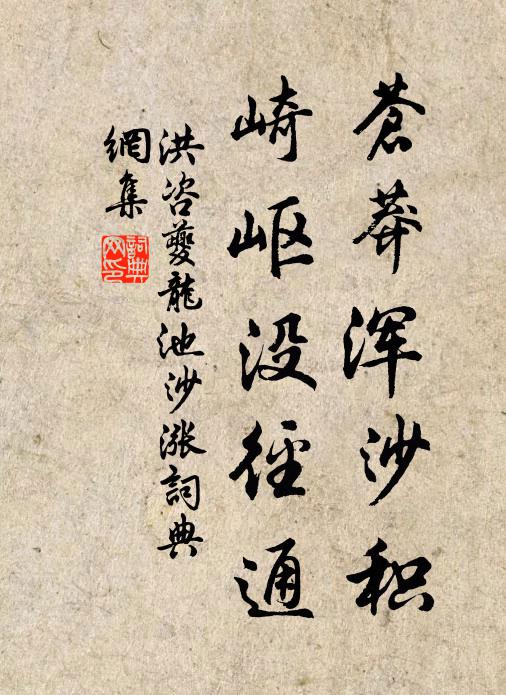 苍莽浑沙积
崎岖没径通
洪咨夔龍池沙漲詞典
網集
詞典
网印